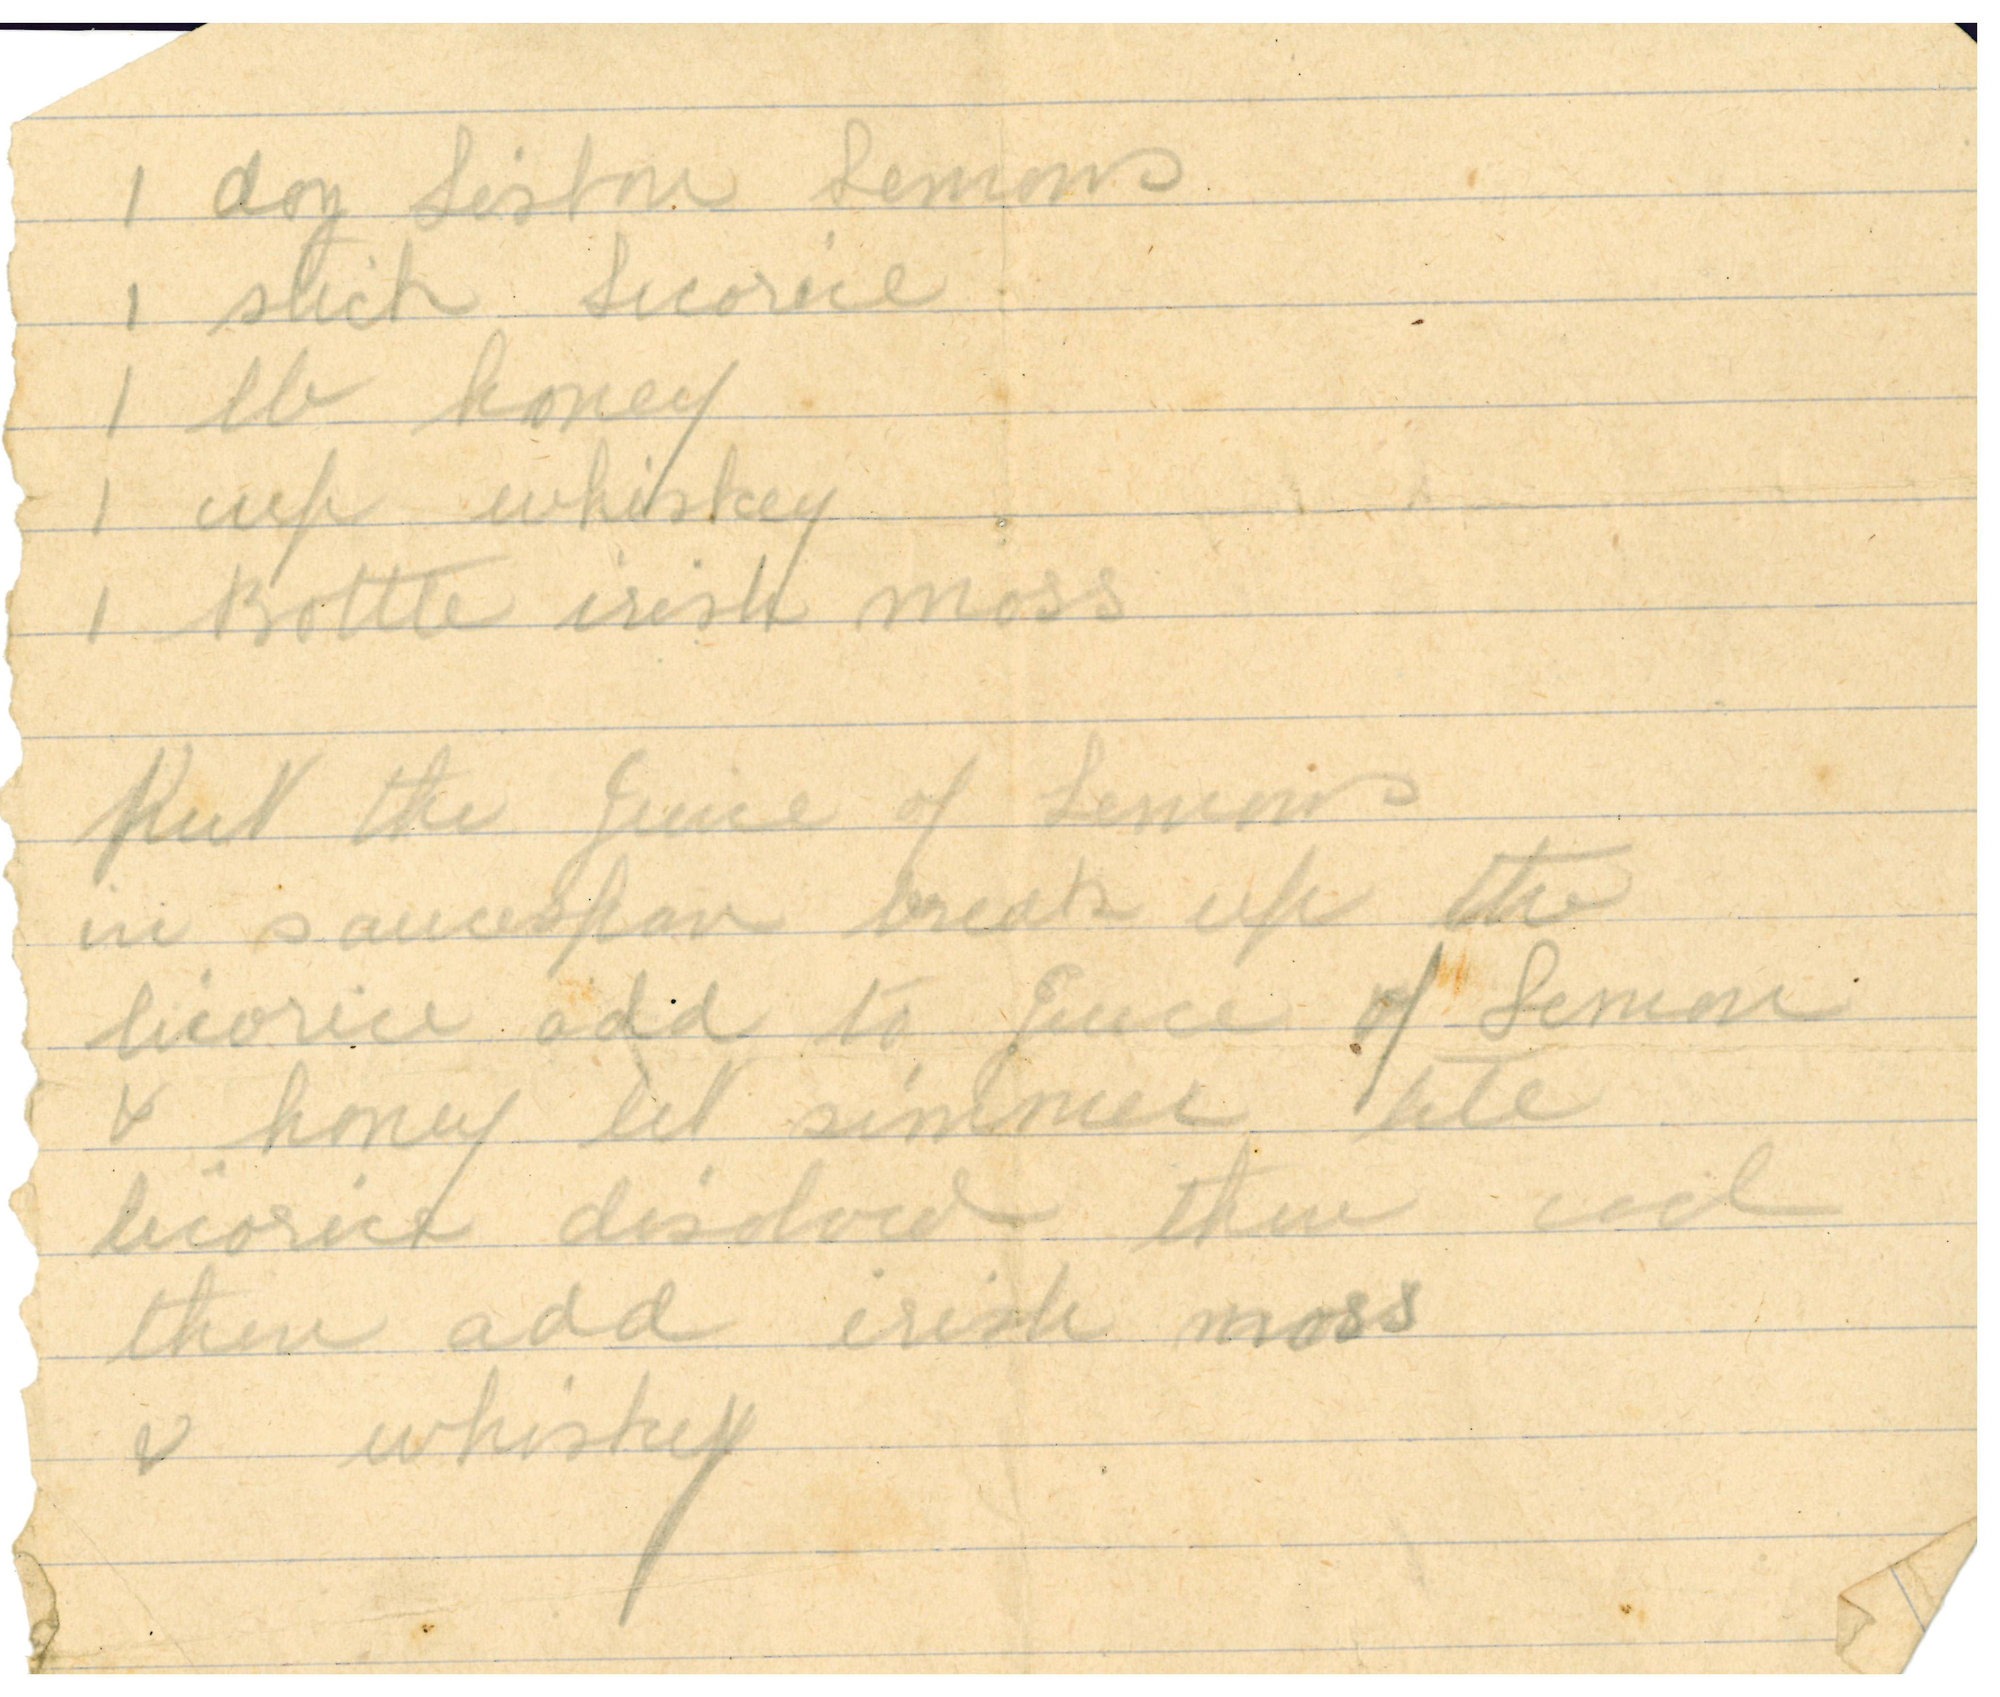 1 doz Lisbon Lemons
1 stick Licorice
1 lb honey
1 cup whiskey
1 Bottle irish moss
Put the Juice of Lemons
in saucespan break up the
licorice add to Juice of Lemon
& honey let simmer till
licorice disolved then cool
then add irish moss
& whiskey